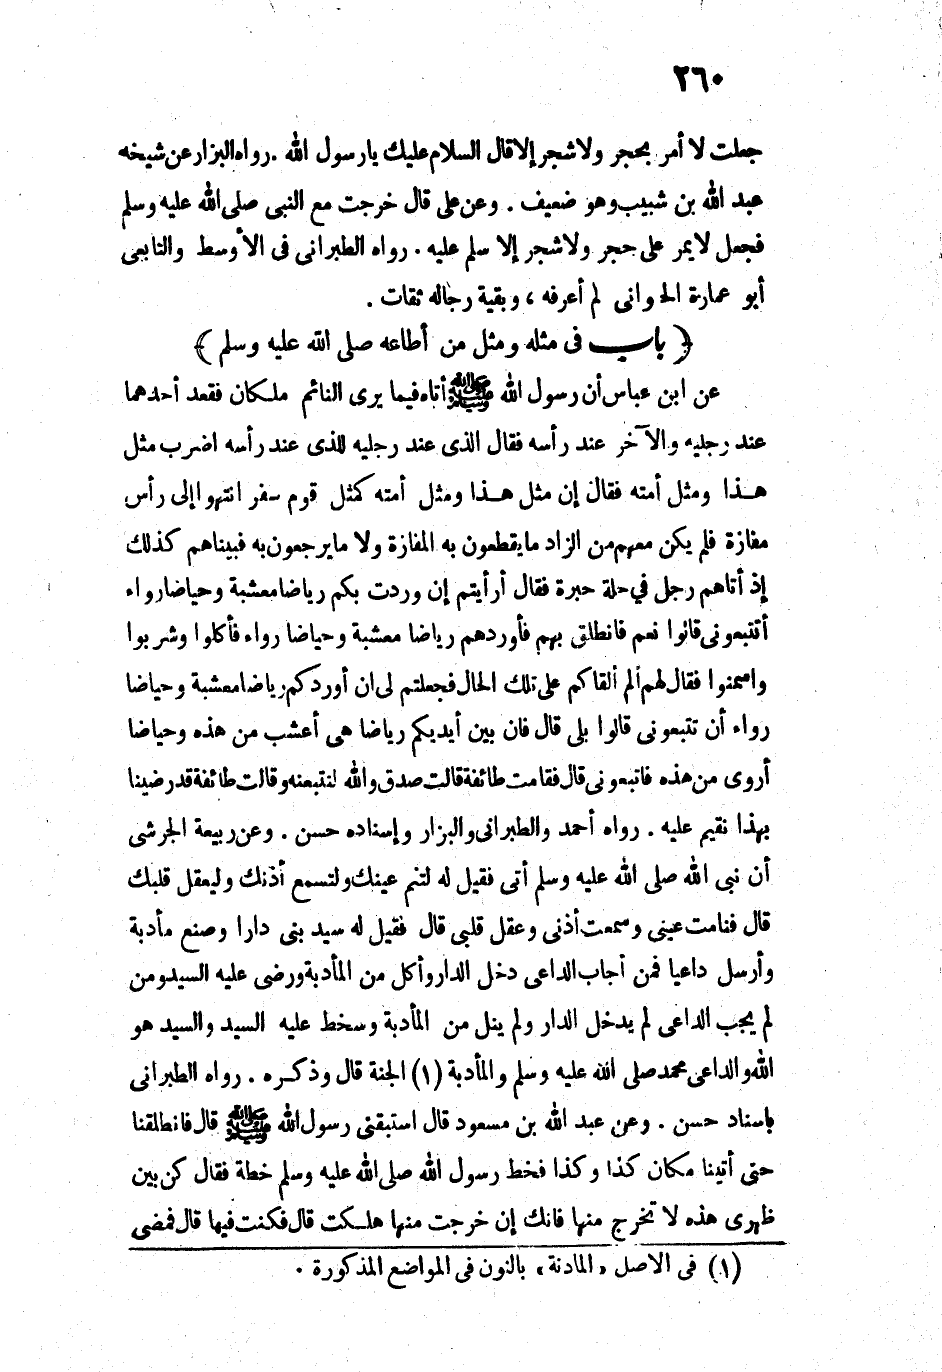 ٢٦٠
جعلت لا أمر بحجر ولا شجر إلا قال السلام عليك يا رسول الله . رواه البزار عن شيخه
عبد الله بن شبيب وهو ضعيف . وعن على قال خرجت مع النبى صلى الله عليه وسلم
فجعل لا يمر على حجر ولا شجر إلا سلم عليه . رواه الطبرانى فى الأوسط والتابعى
أبو عمارة الحوانى لم أعرفه ، وبقية رجاله ثقات .
﴿ باب فى مثله ومثل من أطاعه صلى الله عليه وسلم ﴾
عن ابن عباس أن رسول الله ﷺ أتاه فيما يرى النائم ملكان فقعد أحدهما
عند رجليه والآخر عند رأسه فقال الذى عند رجليه للذى عند رأسه اضرب مثل
هذا ومثل أمته فقال إن مثل هذا ومثل أمته كمثل قوم سفر انتهوا إلى رأس
مفازة فلم يكن معهم من الزاد ما يقطعون به المفازة ولا ما يرجعون به فبيناهم كذلك
إذ أتاهم رجل في حلة حبرة فقال أرأيتم إن وردت بكم رياضا معشبة وحياضا رواء
أتتبعونى قالوا نعم فانطلق بهم فأوردهم رياضا معشبة وحياضا رواء فأكلوا وشربوا
واسمنوا فقال لهم ألم ألقاكم على تلك الحال فجعلتم لى ان أوردكم رياضا معشبة وحياضا
رواء أن تتبعونى قالوا بلى قال فان بين أيديكم رياضا هى أعشب من هذه وحياضا
أروى من هذه فاتبعونى قال فقامت طائفة قالت صدق والله لنتبعنه وقالت طائفة قد رضينا
بهذا نقيم عليه . رواه أحمد والطبرانى والبزار وإسناده حسن . وعن ربيعة الجرشى
أن نبى الله صلى الله عليه وسلم أتى فقيل له لتنم عينك ولتسمع أذنك وليعقل قلبك
قال فنامت عينى وسمعت أذنى وعقل قلبى قال فقيل له سيد بنى دارا وصنع مأدبة
وأرسل داعيا فمن أجاب الداعى دخل الدار وأكل من المأدبة ورضى عليه السيد ومن
لم يجب الداعى لم يدخل الدار ولم ينل من المأدبة وسخط عليه السيد والسيد هو
الله والداعى محمد صلى الله عليه وسلم والمأدبة (١) الجنة قال وذكره . رواه الطبرانى
باسناد حسن . وعن عبد الله بن مسعود قال استبقنى رسول الله ﷺ قال فانطلقنا
حتى أتينا مكان كذا وكذا فخط رسول الله صلى الله عليه وسلم خطة فقال كن بين
ظهرى هذه لا تخرج منها فانك إن خرجت منها هلكت قال فكنت فيها قال فمضى
(١) فى الاصل «المادنة» بالنون فى المواضع المذكورة .